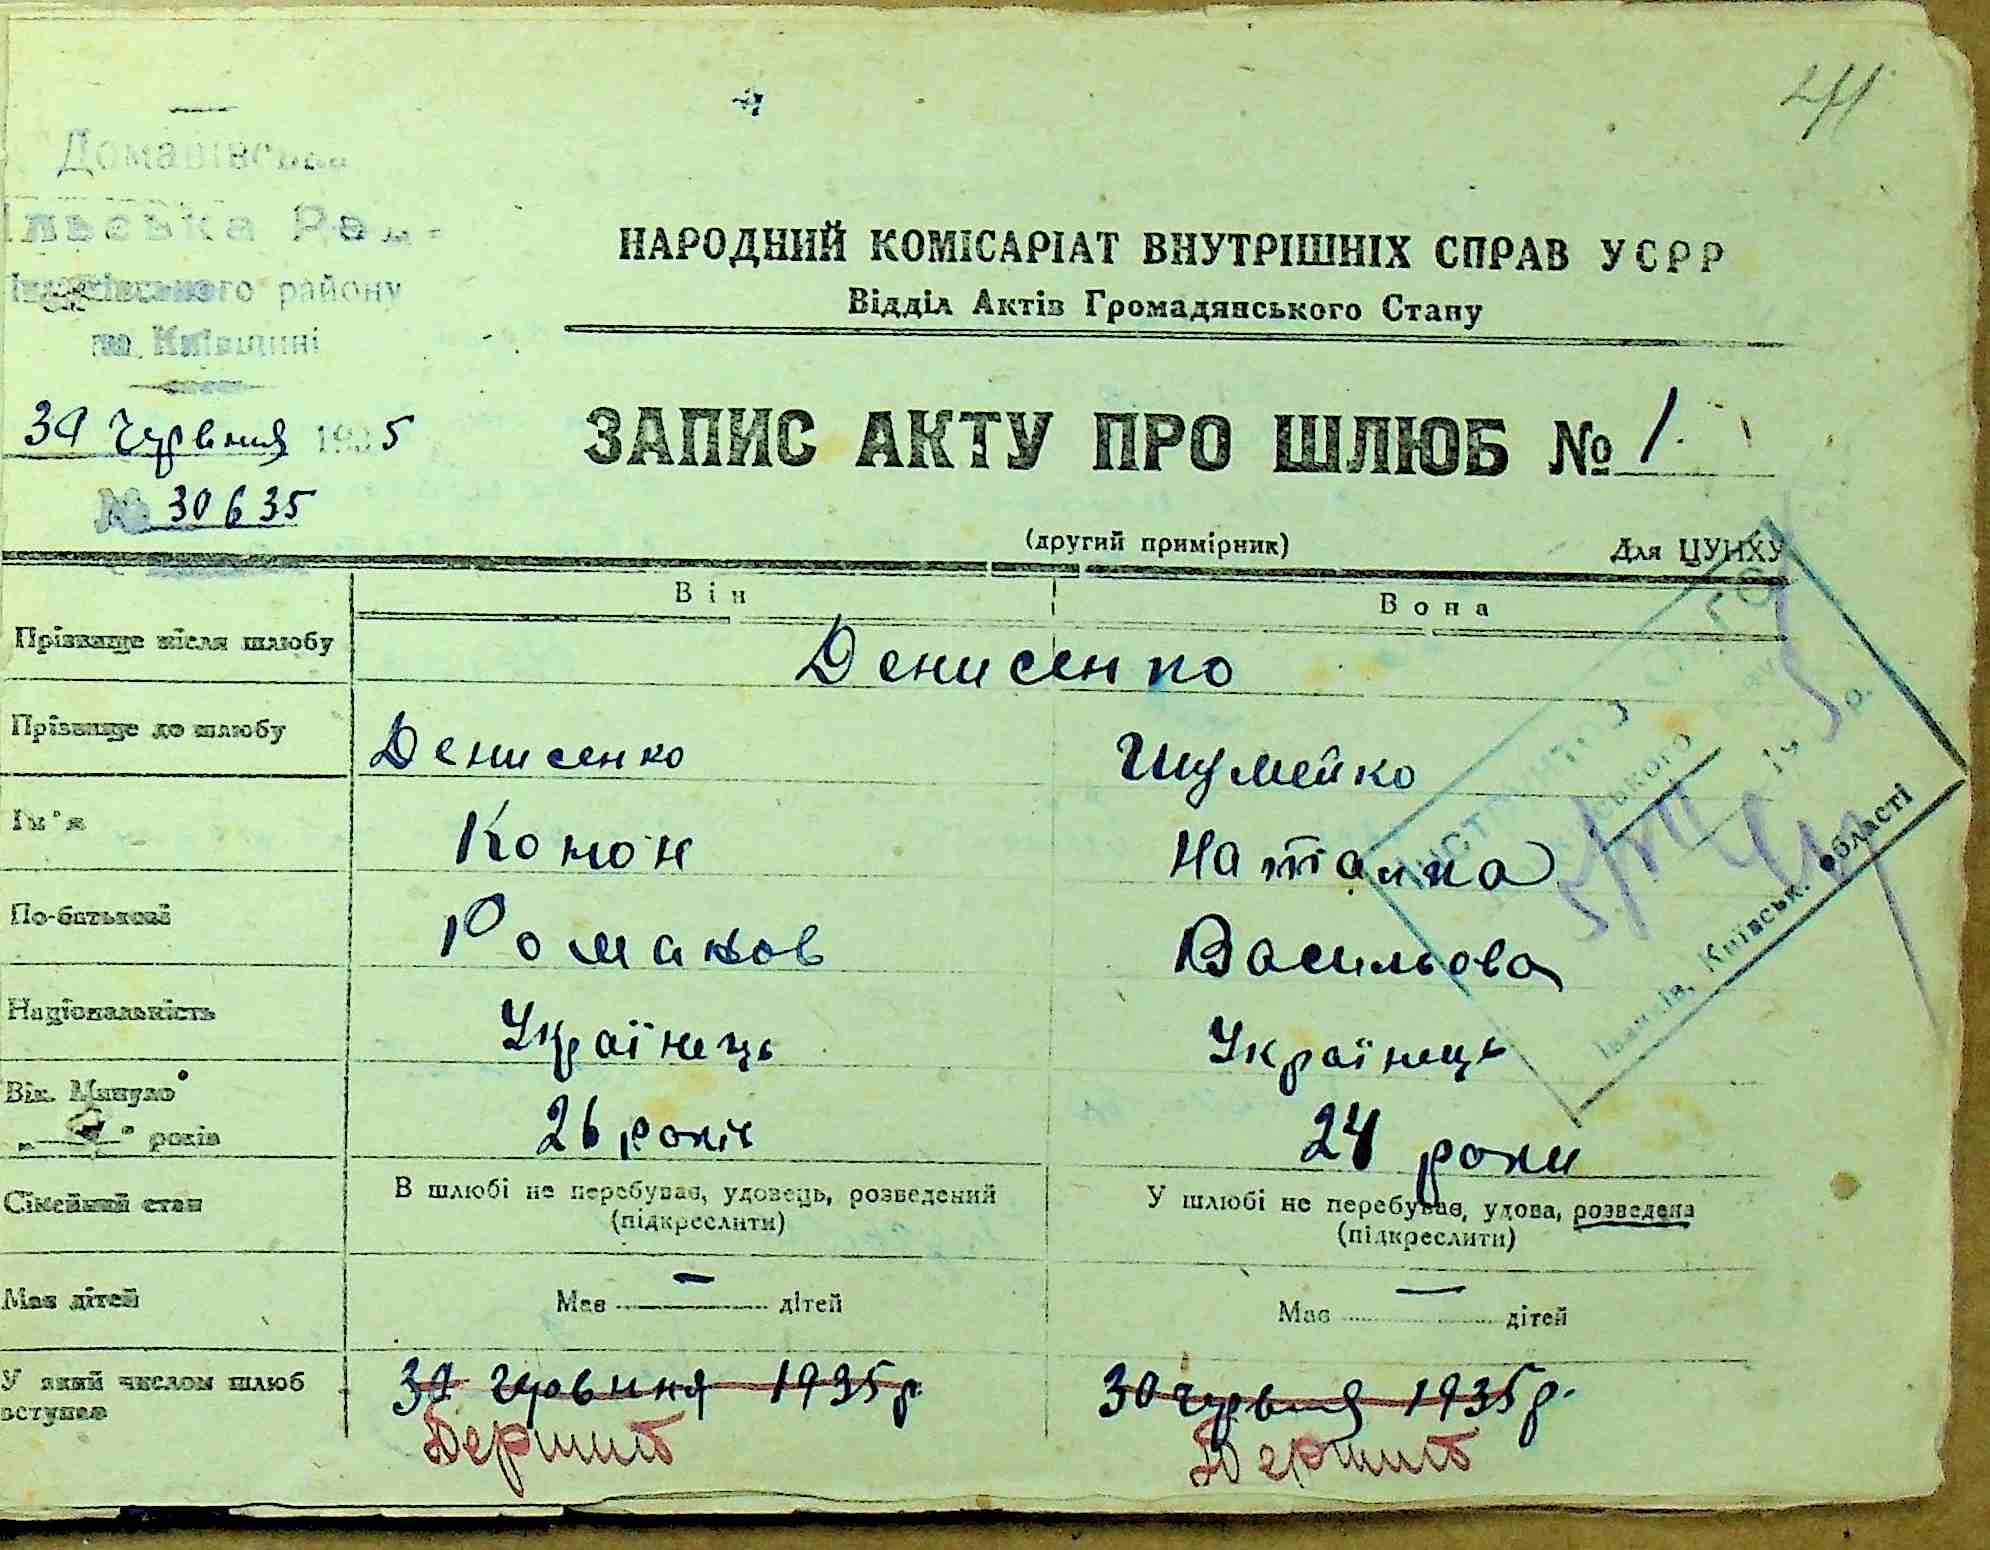 41
Домавівська
ільська Рада
району
на Київщині
30 червня 1935
№ 30635
НАРОДНИЙ КОМІСАРІАТ ВНУТРІШНІХ СПРАВ УСРР
Відділ Актів Громадянського Стану
ЗАПИС АКТУ ПРО ШЛЮБ № 1
(другий примірник) Для ЦУНХУ
Він Вона
Прізвище після шлюбу Денисенко
Прізвище до шлюбу Денисенко Шумейко
Ім'я Конон Наталка
По-батькові Романов Васильова
Національність Українець Українець
Вік. Минуло
„ “ років 26 років 24 роки
Сімейний стан В шлюбі не перебував, удовець, розведений У шлюбі не перебував, удова, розведена
(підкреслити) (підкреслити)
Має дітей Має — дітей Має — дітей
У який числом шлюб вступає 30 червня 1935 р. 30 червня 1935 р.
Перший Перший
Київськ. області